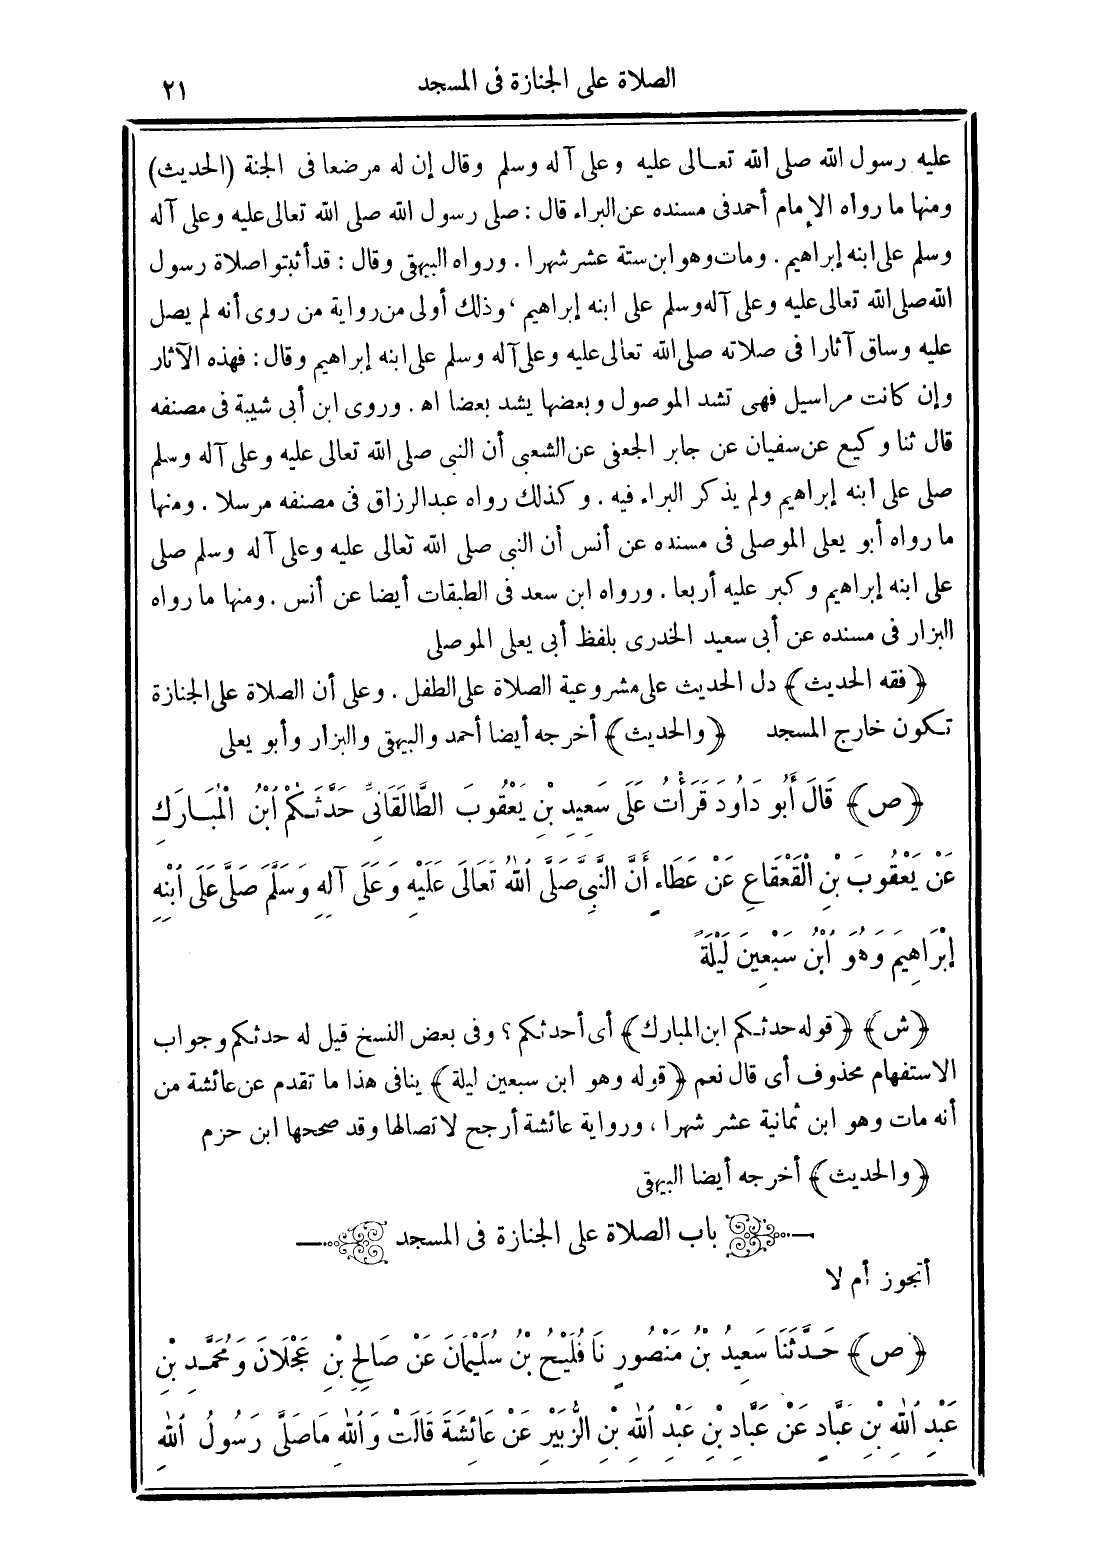 الصلاة على الجنازة فى المسجد ٢١
عليه رسول الله صلى الله تعالى عليه وعلى آله وسلم وقال إن له مرضعا فى الجنة (الحديث)
ومنها ما رواه الإمام أحمد فى مسنده عن البراء قال : صلى رسول الله صلى الله تعالى عليه وعلى آله
وسلم على ابنه إبراهيم . ومات وهو ابن ستة عشر شهرا . ورواه البيهقى وقال : قد أثبتوا صلاة رسول
الله صلى الله تعالى عليه وعلى آله وسلم على ابنه إبراهيم ، وذلك أولى من رواية من روى أنه لم يصل
عليه وساق آثارا فى صلاته صلى الله تعالى عليه وعلى آله وسلم على ابنه إبراهيم وقال : فهذه الآثار
وإن كانت مراسيل فهى تشد الموصول وبعضها يشد بعضا اه . وروى ابن أبى شيبة فى مصنفه
قال ثنا وكيع عن سفيان عن جابر الجعفى عن الشعبى أن النبى صلى الله تعالى عليه وعلى آله وسلم
صلى على ابنه إبراهيم ولم يذكر البراء فيه . وكذلك رواه عبد الرزاق فى مصنفه مرسلا . ومنها
ما رواه أبو يعلى الموصلى فى مسنده عن أنس أن النبى صلى الله تعالى عليه وعلى آله وسلم صلى
على ابنه إبراهيم وكبر عليه أربعا . ورواه ابن سعد فى الطبقات أيضا عن أنس . ومنها ما رواه
البزار فى مسنده عن أبى سعيد الخدرى بلفظ أبى يعلى الموصلى
﴿فقه الحديث﴾ دل الحديث على مشروعية الصلاة على الطفل . وعلى أن الصلاة على الجنازة
تكون خارج المسجد ﴿والحديث﴾ أخرجه أيضا أحمد والبيهقى والبزار وأبو يعلى
﴿ص﴾ قَالَ أَبُو دَاوُدَ قَرَأْتُ عَلَى سَعِيدِ بْنِ يَعْقُوبَ الطَّالَقَانِىِّ حَدَّثَكُمُ ابْنُ الْمُبَارَكِ
عَنْ يَعْقُوبَ بْنِ الْقَعْقَاعِ عَنْ عَطَاءٍ أَنَّ النَّبِىَّ صَلَّى اللهُ تَعَالَى عَلَيْهِ وَعَلَى آلِهِ وَسَلَّمَ صَلَّى عَلَى ابْنِهِ
إِبْرَاهِيمَ وَهُوَ ابْنُ سَبْعِينَ لَيْلَةً
﴿ش﴾ ﴿قوله حدثكم ابن المبارك﴾ أى أحدثكم ؟ وفى بعض النسخ قيل له حدثكم وجواب
الاستفهام محذوف أى قال نعم ﴿قوله وهو ابن سبعين ليلة﴾ ينافى هذا ما تقدم عن عائشة من
أنه مات وهو ابن ثمانية عشر شهرا ، ورواية عائشة أرجح لاتصالها وقد صححها ابن حزم
﴿والحديث﴾ أخرجه أيضا البيهقى
باب الصلاة على الجنازة فى المسجد
أتجوز أم لا
﴿ص﴾ حَدَّثَنَا سَعِيدُ بْنُ مَنْصُورٍ نَا فُلَيْحُ بْنُ سُلَيْمَانَ عَنْ صَالِحِ بْنِ عَجْلَانَ وَمُحَمَّدِ بْنِ
عَبْدِ اللهِ بْنِ عَبَّادٍ عَنْ عَبَّادِ بْنِ عَبْدِ اللهِ بْنِ الزُّبَيْرِ عَنْ عَائِشَةَ قَالَتْ وَاللهِ مَا صَلَّى رَسُولُ اللهِ